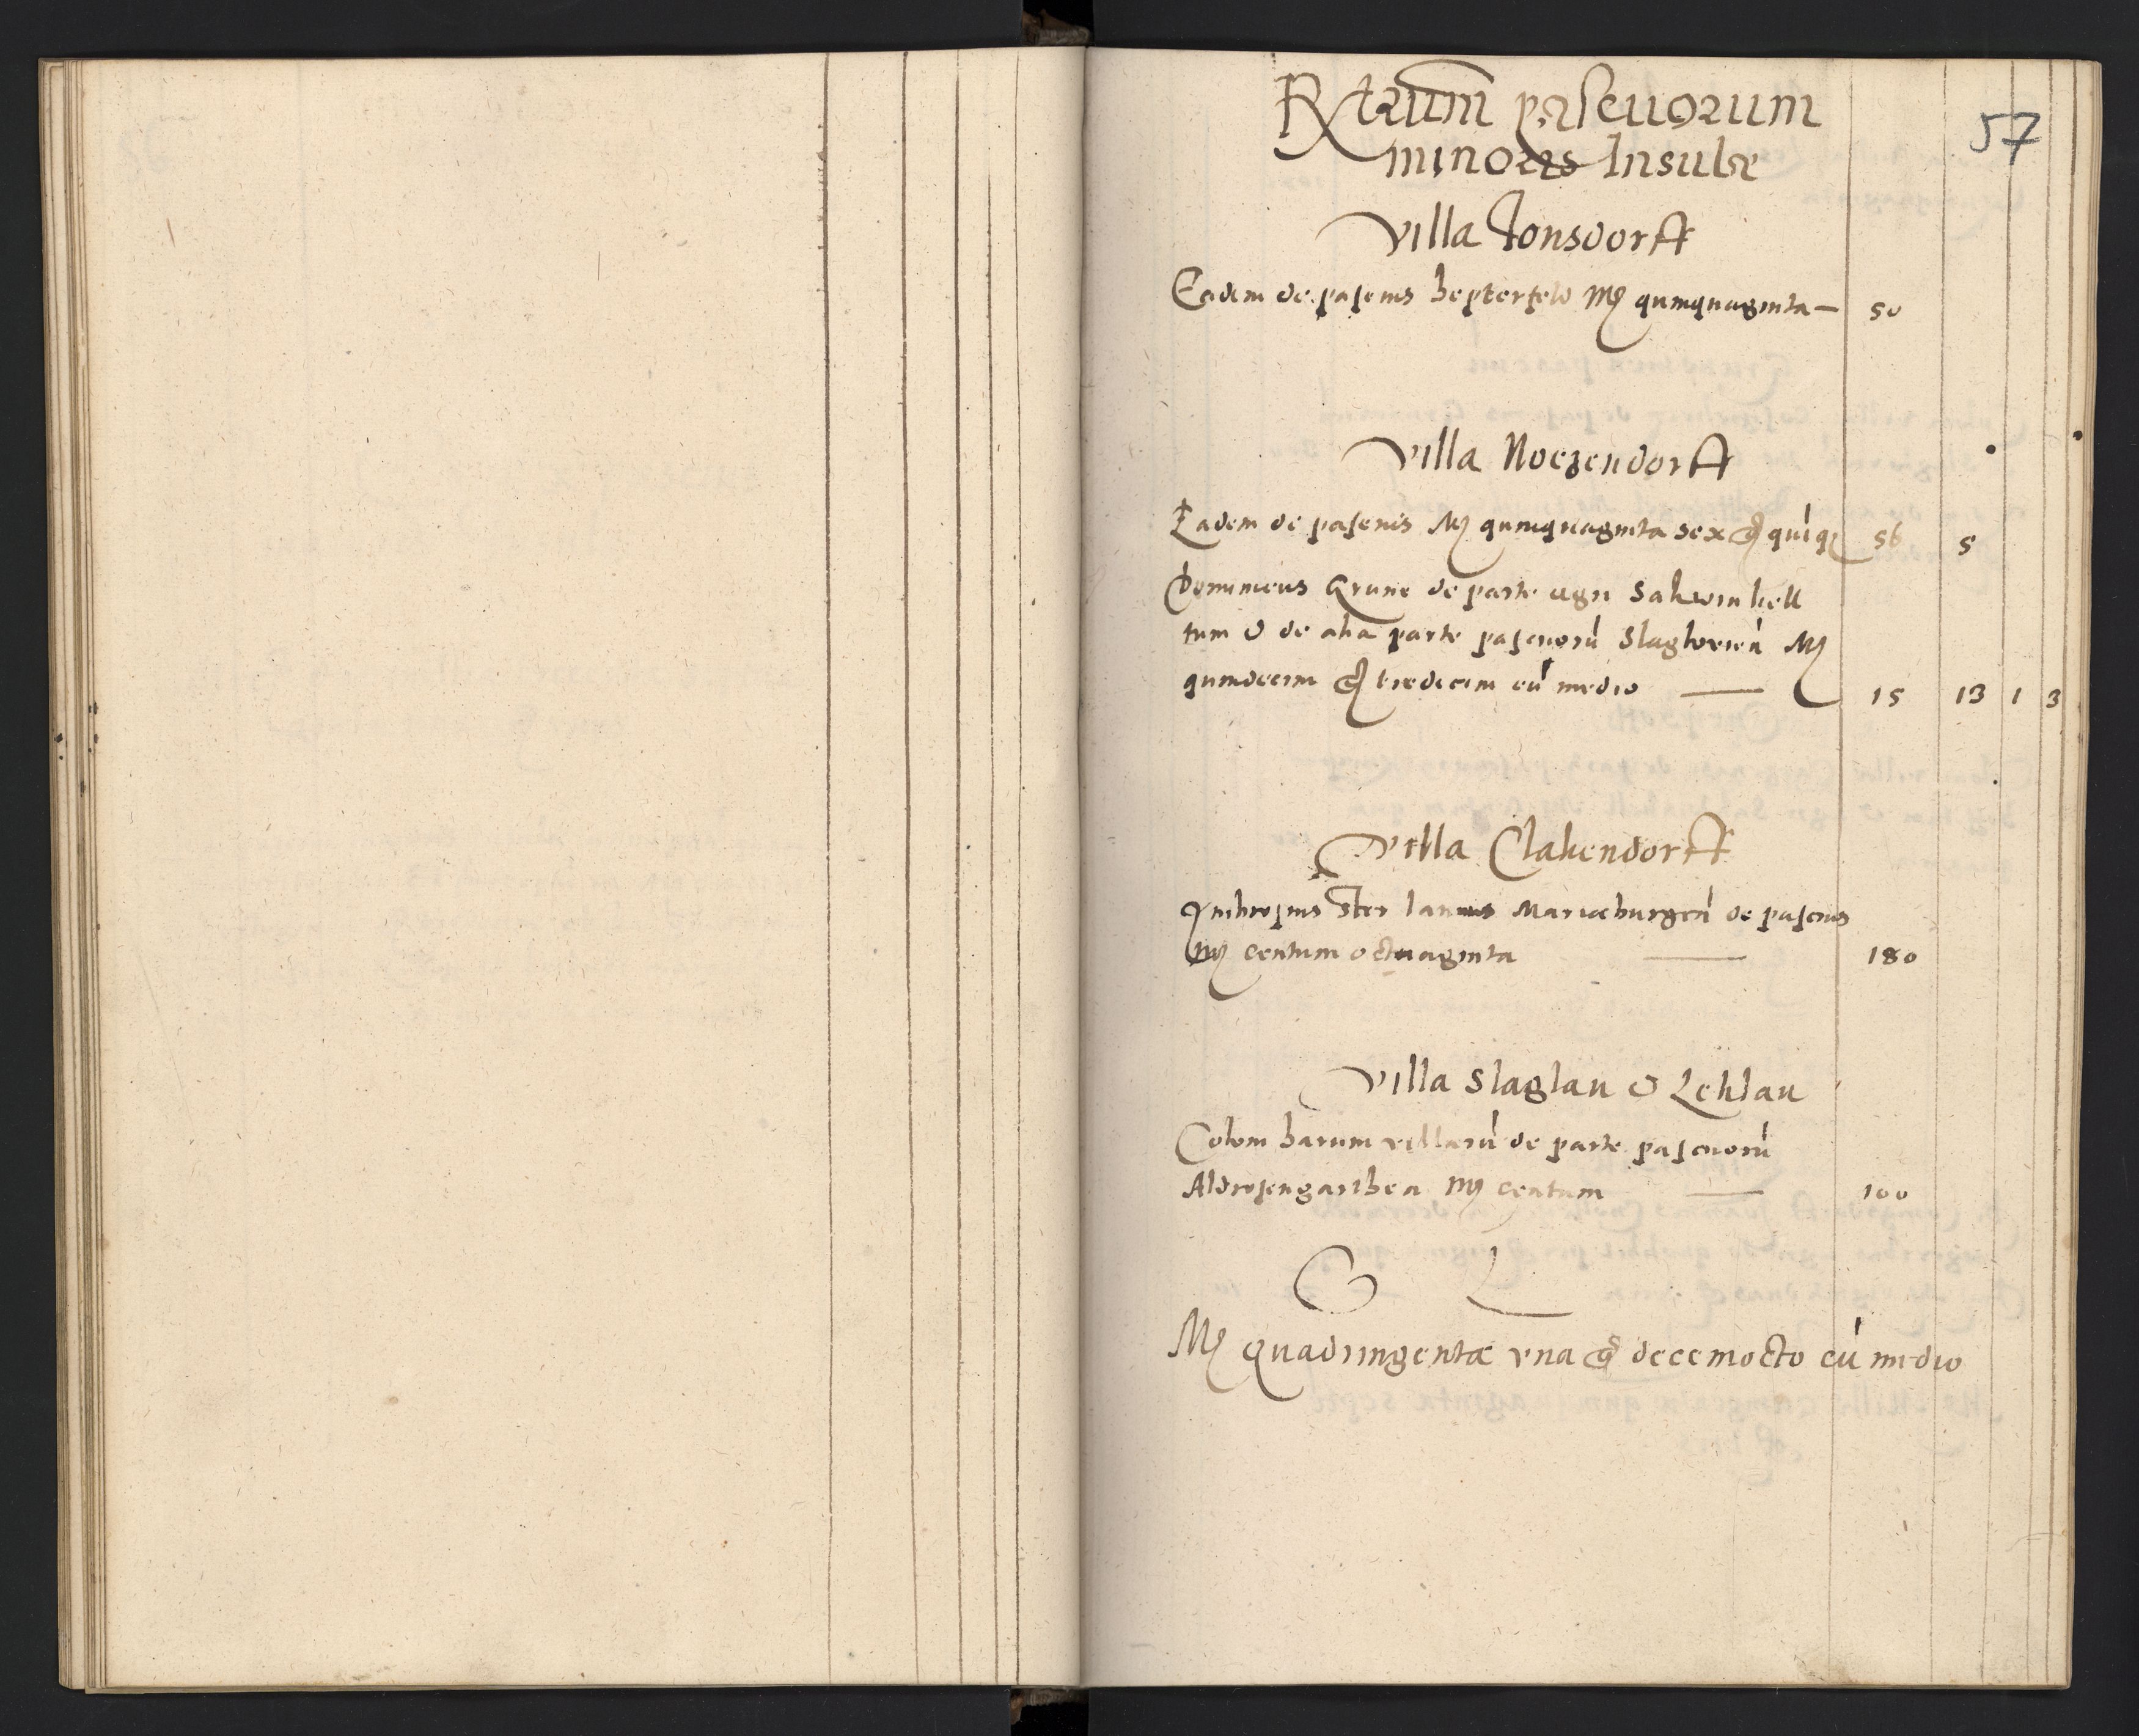 57
Rxtrum pascuorum
minoris Insulae
Villa Jonsdorff
Eadem de pascuis hepterfeld Mr quinquaginta — 50
Villa Noezendorff
Eadem de pascuis Mr quinquaginta sex gr quīq3 56 5
Dominicus Grune de parte agri Sakwinkell
tum & de alia parte pascuorū Slaglovień Mr
quindecim gr tredecim cū medio — 15 13 1 3
Villa Clakendorff
Ambrosius Ster lanius Mariaeburgeń de pascuis
Mr centum octuaginta — 180
Villa Slaglau & Leklau
Coloni harum villarū de parte pascuorū
Aldrosengarthen Mr centum — 100
Mr quadringentae vna gr decemocto cū medio